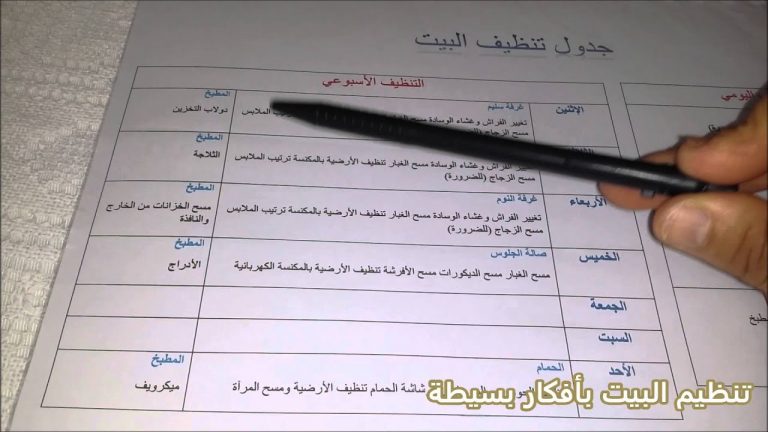 جدول تنظيف البيت
التنظيف الأسبوعي
اليومي
الإثنين
غرفة سليم
تغيير الفراش وغشاء الوسادة مسح الغبار
الملابس
مسح الزجاج (للضرورة)
المطبخ
دولاب التخزين
تغيير الفراش وغشاء الوسادة مسح الغبار تنظيف الأرضية بالمكنسة ترتيب الملابس
مسح الزجاج (للضرورة)
المطبخ
الثلاجة
الأربعاء
غرفة النوم
تغيير الفراش وغشاء الوسادة مسح الغبار تنظيف الأرضية بالمكنسة ترتيب الملابس
مسح الزجاج (للضرورة)
المطبخ
مسح الخزانات من الخارج
والنافذة
الخميس
صالة الجلوس
مسح الغبار مسح الديكورات مسح الأفرشة تنظيف الأرضية بالمكنسة الكهربائية
المطبخ
الأدراج
الجمعة
السبت
الأحد
الحمام
شاشة الحمام تنظيف الأرضية ومسح المرأة
المطبخ
ميكرويف
تنظيم البيت بأفكار بسيطة